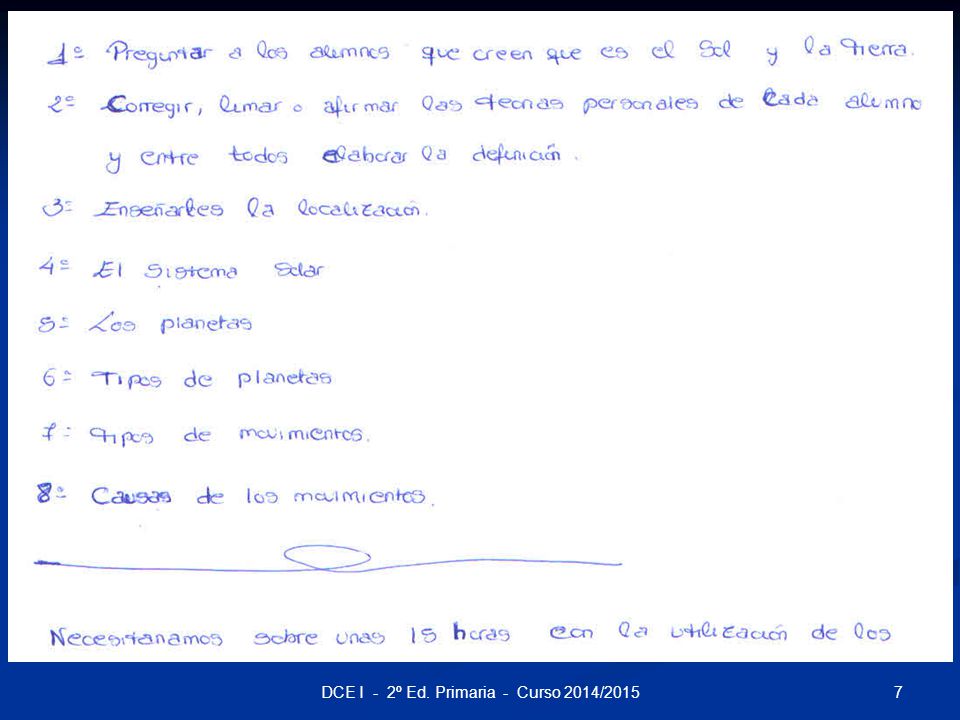 1º Preguntar a los alumnos que creen que es el Sol y la tierra.
2º Corregir, limar o afirmar las teorias personales de cada alumno
y entre todos elaborar la definición.
3º Enseñarles la localización.
4º El Sistema Solar
5º Los planetas
6º Tipos de planetas
7º tipos de movimientos.
8º Causas de los movimientos.
Necesitariamos sobre unas 15 horas con la utilización de los
DCE I - 2º Ed. Primaria - Curso 2014/2015 7